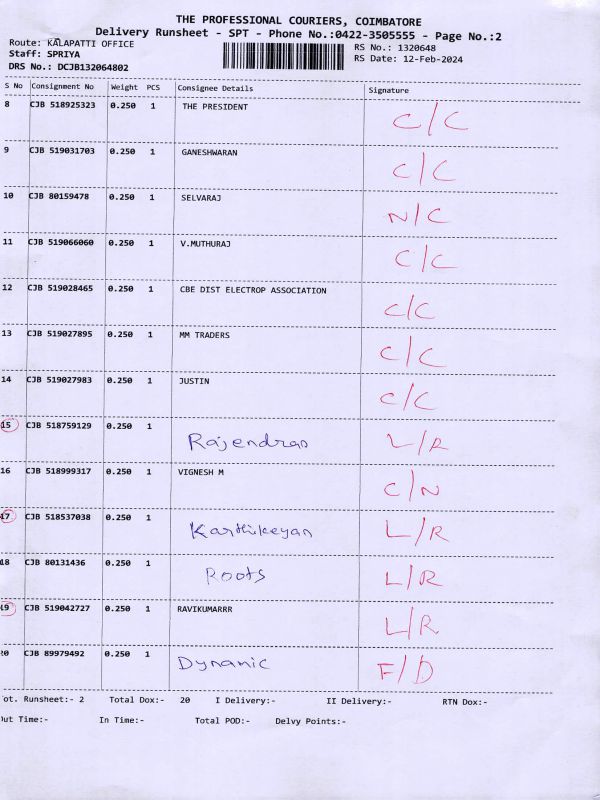 THE PROFESSIONAL COURIERS, COIMBATORE
Delivery Runsheet - SPT - Phone No.:0422-3505555 - Page No.:2
Route: KALAPATTI OFFICE
RS No.: 1320648
Staff: SPRIYA
RS Date: 12-Feb-2024
DRS No.: DCJB132064802
S No Consignment No Weight PCS Consignee Details Signature
8 CJB 518925323 0.250 1 THE PRESIDENT C/C
9 CJB 519031703 0.250 1 GANESHWARAN C/C
10 CJB 80159478 0.250 1 SELVARAJ N/C
11 CJB 519066060 0.250 1 V.MUTHURAJ C/C
12 CJB 519028465 0.250 1 CBE DIST ELECTROP ASSOCIATION C/C
13 CJB 519027895 0.250 1 MM TRADERS C/C
14 CJB 519027983 0.250 1 JUSTIN C/C
15 CJB 518759129 0.250 1 Rajendran L/R
16 CJB 518999317 0.250 1 VIGNESH M C/N
17 CJB 518537038 0.250 1 Karthikeyan L/R
18 CJB 80131436 0.250 1 Roots L/R
19 CJB 519042727 0.250 1 RAVIKUMARRR L/R
20 CJB 89979492 0.250 1 Dynamic F/D
ot. Runsheet:- 2 Total Dox:- 20 I Delivery:- II Delivery:- RTN Dox:-
Out Time:- In Time:- Total POD:- Delvy Points:-